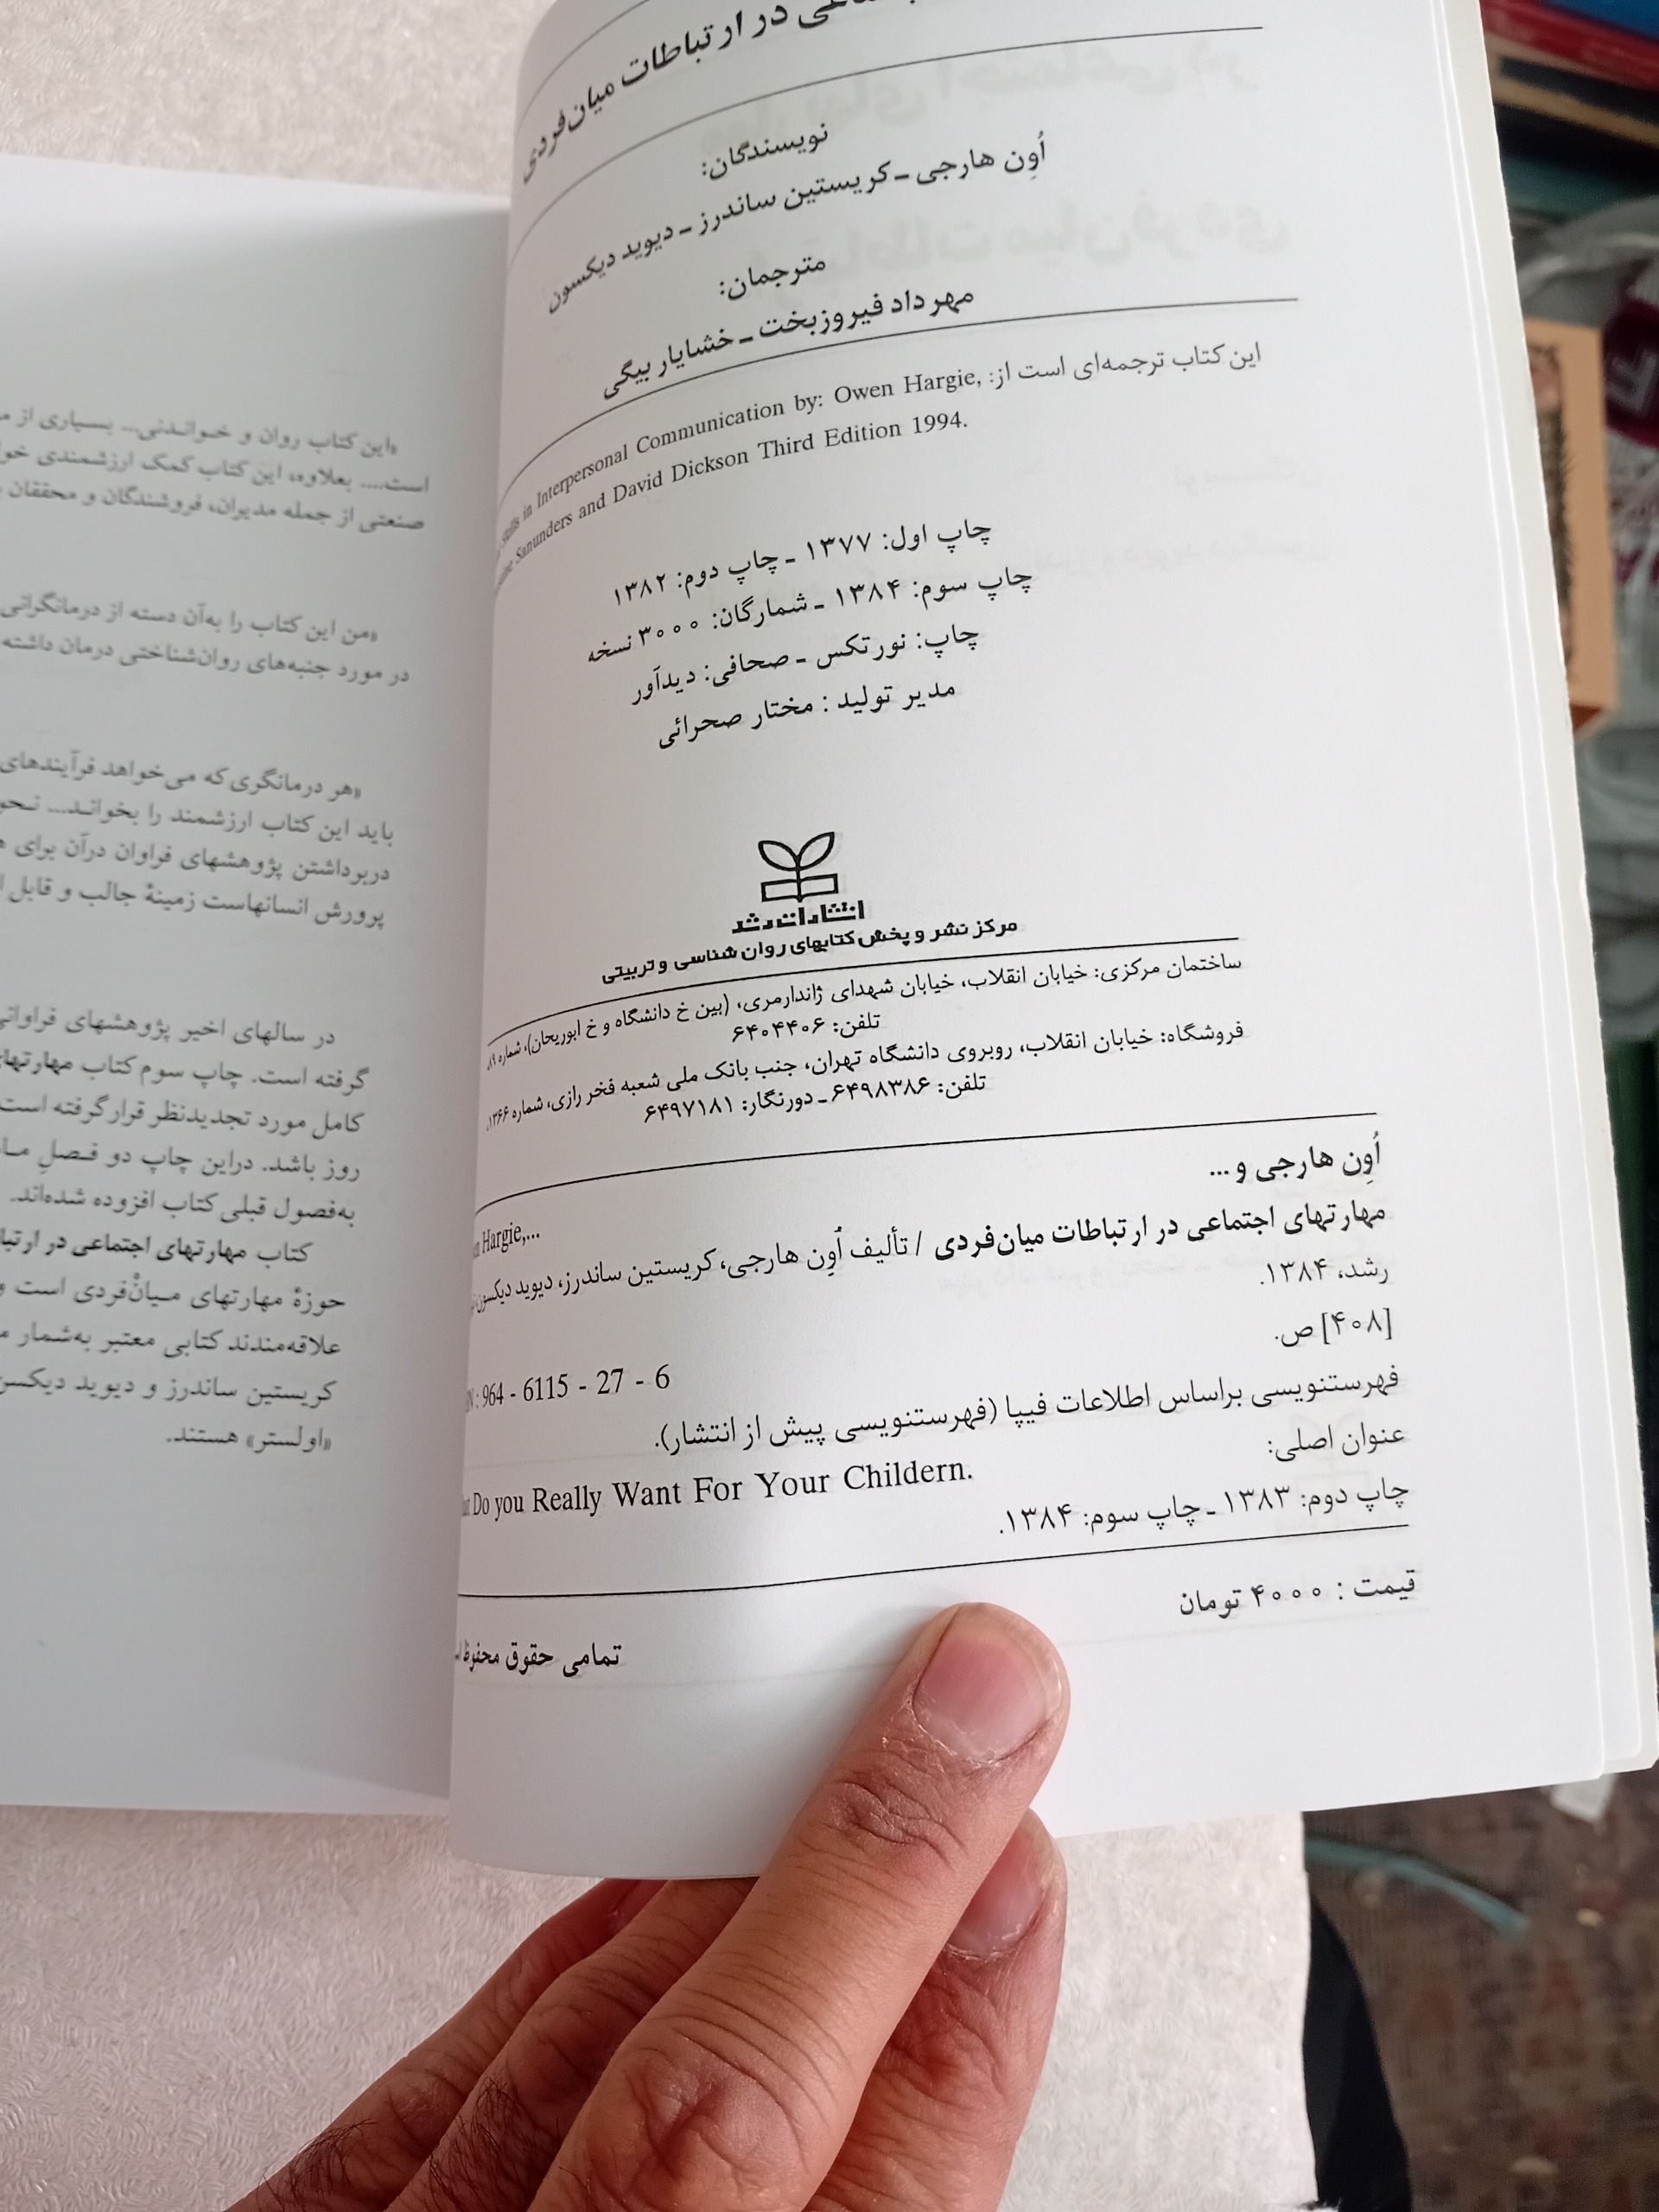 در ارتباطات میان‌فردی
نویسندگان:
اُوِن هارجی ـ کریستین ساندرز ـ دیوید دیکسون
مترجمان:
مهرداد فیروزبخت ـ خشایار بیگی
این کتاب ترجمه‌ای است از:
Skills in Interpersonal Communication by: Owen Hargie,
Sanunders and David Dickson Third Edition 1994.
چاپ اول: ۱۳۷۷ ـ چاپ دوم: ۱۳۸۲
چاپ سوم: ۱۳۸۴ ـ شمارگان: ۳۰۰۰ نسخه
چاپ: نورتکس ـ صحافی: دیدآور
مدیر تولید : مختار صحرائی
انتشارات رشد
مرکز نشر و پخش کتابهای روان شناسی و تربیتی
ساختمان مرکزی: خیابان انقلاب، خیابان شهدای ژاندارمری، (بین خ دانشگاه و خ ابوریحان)، شماره ۸۹
تلفن: ۶۴۰۴۴۰۶
فروشگاه: خیابان انقلاب، روبروی دانشگاه تهران، جنب بانک ملی شعبه فخر رازی، شماره ۱۳۶۶
تلفن: ۶۴۹۸۳۸۶ ـ دورنگار: ۶۴۹۷۱۸۱
اُوِن هارجی و ...
Hargie,...
مهارتهای اجتماعی در ارتباطات میان‌فردی / تألیف اُوِن هارجی، کریستین ساندرز، دیوید دیکسون
رشد، ۱۳۸۴.
[۴۰۸] ص.
964 - 6115 - 27 - 6
فهرستنویسی براساس اطلاعات فیپا (فهرستنویسی پیش از انتشار).
عنوان اصلی:
Do you Really Want For Your Childern.
چاپ دوم: ۱۳۸۳ ـ چاپ سوم: ۱۳۸۴.
قیمت : ۴۰۰۰ تومان
تمامی حقوق محفوظ
«این کتاب روان و خواندنی... بسیاری از
است.... بعلاوه، این کتاب کمک ارزشمندی
صنعتی از جمله مدیران، فروشندگان و محققان
«من این کتاب را به‌آن دسته از درمانگرانی
در مورد جنبه‌های روان‌شناختی درمان داشته
«هر درمانگری که می‌خواهد فرآیندهای
باید این کتاب ارزشمند را بخواند...
دربرداشتن پژوهشهای فراوان درآن برای
پرورش انسانهاست زمینهٔ جالب و قابل
در سالهای اخیر پژوهشهای فراوانی
گرفته است. چاپ سوم کتاب مهارتهای
کامل مورد تجدیدنظر قرارگرفته است
روز باشد. دراین چاپ دو فصلِ
به‌فصول قبلی کتاب افزوده شده‌اند.
کتاب مهارتهای اجتماعی در
حوزهٔ مهارتهای میان‌فردی است و
علاقه‌مندند کتابی معتبر به‌شمار
کریستین ساندرز و دیوید دیکسن
«اولستر» هستند.